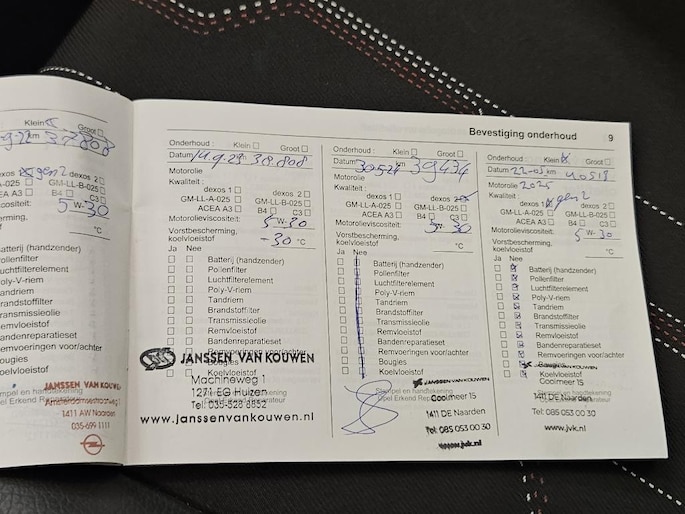 Klein Groot
km 37808
dexos 2
A-025 GM-LL-B-025
EA A3 B4 C3
viscositeit: 5 W-30
°C
Batterij (handzender)
Pollenfilter
Luchtfilterelement
Poly-V-riem
Tandriem
Brandstoffilter
Transmissieolie
Remvloeistof
Bandenreparatieset
Remvoeringen voor/achter
Bougies
Koelvloeistof
JANSSEN VAN KOUWEN
1411 AW Naarden
035-699 1111
Bevestiging onderhoud 9
Onderhoud : Klein Groot
Datum 14.9.23 38.808
Motorolie
Kwaliteit :
dexos 1 dexos 2
GM-LL-A-025 GM-LL-B-025
ACEA A3 B4 C3
Motorolieviscositeit: 5 W-30
Vorstbescherming, koelvloeistof -30 °C
Ja Nee
Batterij (handzender)
Pollenfilter
Luchtfilterelement
Poly-V-riem
Tandriem
Brandstoffilter
Transmissieolie
Remvloeistof
Bandenreparatieset
Remvoeringen voor/achter
Bougies
Koelvloeistof
JANSSEN VAN KOUWEN
Machineweg 1
1271 EG Huizen
Tel: 035-528 6852
www.janssenvankouwen.nl
Onderhoud : Klein Groot
Datum 30524 km 39434
Motorolie
Kwaliteit :
dexos 1 dexos 2
GM-LL-A-025 GM-LL-B-025
ACEA A3 B4 C3
Motorolieviscositeit: 5 W- 30
Vorstbescherming, koelvloeistof °C
Ja Nee
Batterij (handzender)
Pollenfilter
Luchtfilterelement
Poly-V-riem
Tandriem
Brandstoffilter
Transmissieolie
Remvloeistof
Bandenreparatieset
Remvoeringen voor/achter
Bougies
Koelvloeistof
JANSSEN VAN KOUWEN
Cooimeer 15
1411 DE Naarden
Tel: 085 053 00 30
www.jvk.nl
Onderhoud : Klein Groot
Datum 22-03 km 40518
Motorolie 2025
Kwaliteit :
dexos 1 gen2
GM-LL-A-025 GM-LL-B-025
ACEA A3 B4 C3
Motorolieviscositeit: 5 W- 30
Vorstbescherming, koelvloeistof °C
Ja Nee
Batterij (handzender)
Pollenfilter
Luchtfilterelement
Poly-V-riem
Tandriem
Brandstoffilter
Transmissieolie
Remvloeistof
Bandenreparatieset
Remvoeringen voor/achter
Bougies
Koelvloeistof
JANSSEN VAN KOUWEN
Cooimeer 15
1411 DE Naarden
Tel: 085 053 00 30
www.jvk.nl